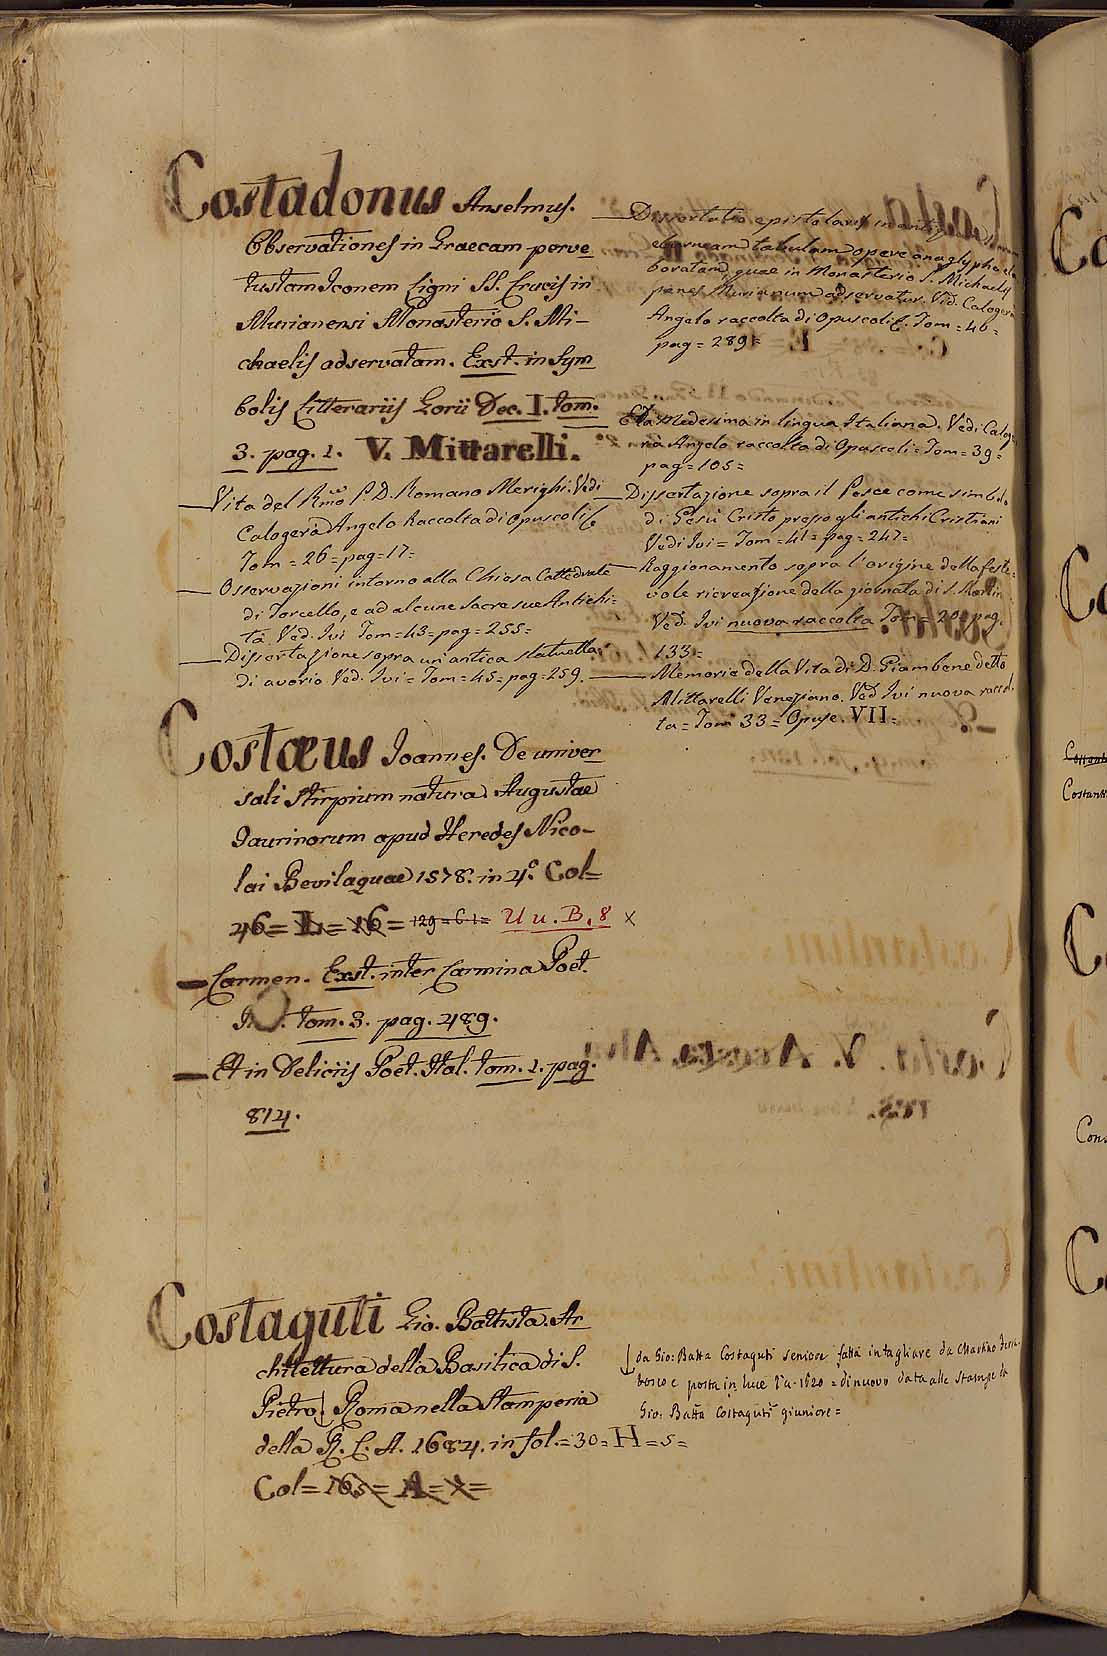 Costadonus Anselmus.
Observationes in Graecam perve
tustam Iconem Ligni SS. Crucis in
Murianensi Monasterio S. Mi-
chaelis adservatam. Exst. in Sym
bolis Litterariis Gorii Dec. I. tom.
3. pag. 1. V. Mittarelli.
Vita del Rmo P. D. Romano Merighi. Vedi
Calogerà Angelo Raccolta di Opuscoli &
Tom = 26 = pag = 17 =
Osservazioni intorno alla Chiesa Cattedrale
di Torcello, e ad alcune sacre sue Antichi=
tà Ved. Ivi Tom = 43 = pag = 255 =
Dissertazione sopra un'antica statuella
di avorio Ved. Ivi = Tom = 45 = pag = 259.
Dissertatio epistolaris in
eburneam tabulam opere anaglypho ela
boratam, quae in Monasterio S. Michaelis
penes Murianum adservatur. Ved. Calogerà
Angelo raccolta di Opuscoli &. Tom = 40 =
pag = 289 =
La Medesima in lingua Italiana. Vedi Caloge
rà Angelo raccolta di Opuscoli = Tom = 39 =
pag = 105 =
Dissertazione sopra il Pesce come simbolo
di Gesù Cristo presso gli antichi Cristiani
Vedi Ivi = Tom = 41 = pag = 247 =
Raggionamento sopra l'origine della feste=
vole ricreazione della giornata di S. Martin
Ved. Ivi nuova raccolta Tom = 20 = pag.
133 =
Memorie della Vita di D. Giambene detto
Mittarelli Veneziano. Ved Ivi nuova raccol
ta = Tom 33 = Opusc. VII =
Costaeus Ioannes. De univer
sali stirpium natura. Augustae
Taurinorum apud Heredes Nico-
lai Bevilaquae 1578. in 4.° Col=
46 = L = 16 = 129 = C 1 = U u. B. 8 x
Carmen. Exst. inter Carmina Poet.
tom. 3. pag. 489.
Et in Deliciis Poet. Ital. tom. 1. pag.
814.
Costaguti Gio. Battista. Ar
chitettura della Basilica di S.
Pietro Roma nella Stamperia
della R. C. A. 1684. in fol. = 30 = H = 5 =
Col = 165 = A = x =
da Gio: Batta Costaguti seniore fatta intagliare da Martino Ferra
bosco e posta in luce l'a. 1620 = di nuovo data alle stampe da
Gio: Batta Costaguti giuniore =